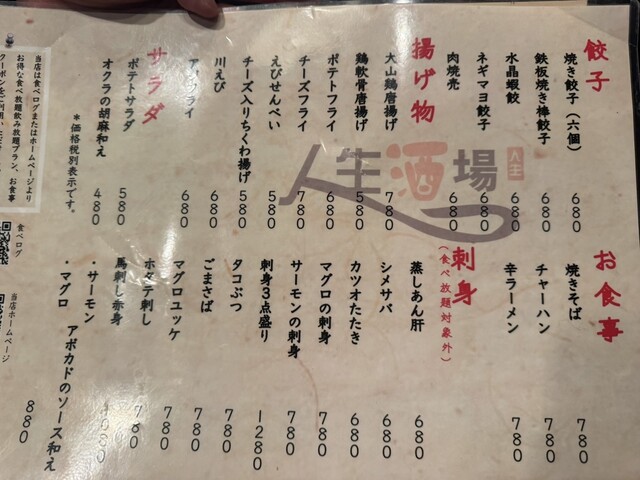 餃子
焼き餃子（六個） 680
鉄板焼き棒餃子 680
水晶蝦餃 680
ネギマヨ餃子 680
肉焼売 680
揚げ物
大山鶏唐揚げ 780
鶏軟骨唐揚げ 580
ポテトフライ 680
チーズフライ 780
えびせんべい 580
チーズ入りちくわ揚げ 580
川えび 680
フライ 680
サラダ
ポテトサラダ 580
オクラの胡麻和え 480
＊価格税別表示です。
人生酒場
お食事
焼きそば 780
チャーハン 780
辛ラーメン 780
刺身
（食べ放題対象外）
蒸しあん肝 680
シメサバ 680
カツオたたき 680
マグロの刺身 780
サーモンの刺身 780
刺身3点盛り 1280
タコぶつ 780
ごまさば 780
マグロユッケ 780
ホタテ刺し 780
馬刺し赤身
・サーモン
・マグロ アボカドのソース和え 880
当店は食べログまたはホームページより
お得な食べ放題飲み放題プラン、お食事
食べログ
当店ホームページ